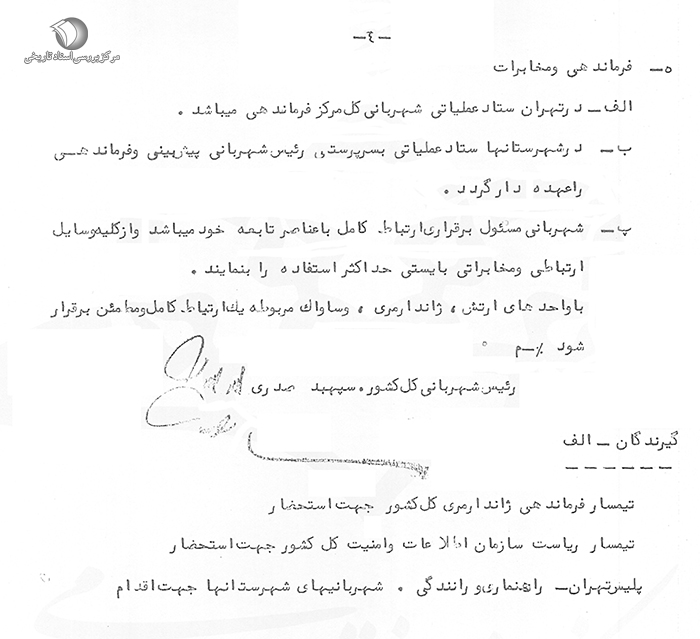 مرکز بررسی اسناد تاریخی
-٤-
ه- فرماندهی ومخابرات
الف- درتهران ستاد عملیاتی شهربانی کل مرکز فرماندهی میباشد .
ب- درشهرستانها ستاد عملیاتی بسرپرستی رئیس شهربانی پیش‌بینی وفرماندهی
راعهده دارگردد .
پ- شهربانی مسئول برقراری ارتباط کامل باعناصر تابعه خود میباشد وازکلیه وسایل
ارتباطی ومخابراتی بایستی حداکثر استفاده را بنمایند .
باواحدهای ارتش ، ژاندارمری ، وساواك مربوطه یك ارتباط کامل ومطمئن برقرار
شود ./-م
رئیس شهربانی کل کشور . سپهبد صدری
گیرندگان - الف
تیمسار فرماندهی ژاندارمری کل کشور جهت استحضار
تیمسار ریاست سازمان اطلاعات وامنیت کل کشور جهت استحضار
پلیس تهران- راهنمائی و رانندگی . شهربانیهای شهرستانها جهت اقدام